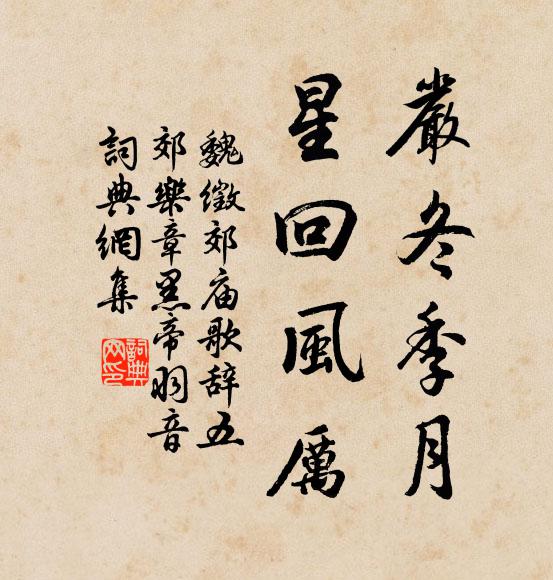 嚴冬季月
星回風厲
魏徵郊庙歌辞五
郊樂章黑帝羽音
詞典網集
詞典網印